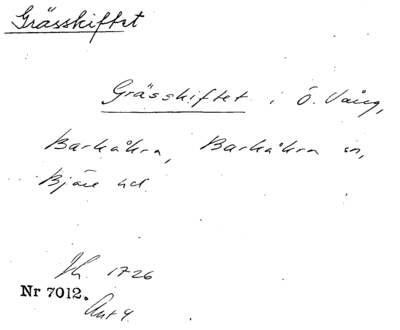 Grässkiftet
Grässkiftet i Ö. Vång,
Barkåkra, Barkåkra sn,
Bjäre hd.
Sk. 1726
Nr 7012.
Akt 4.